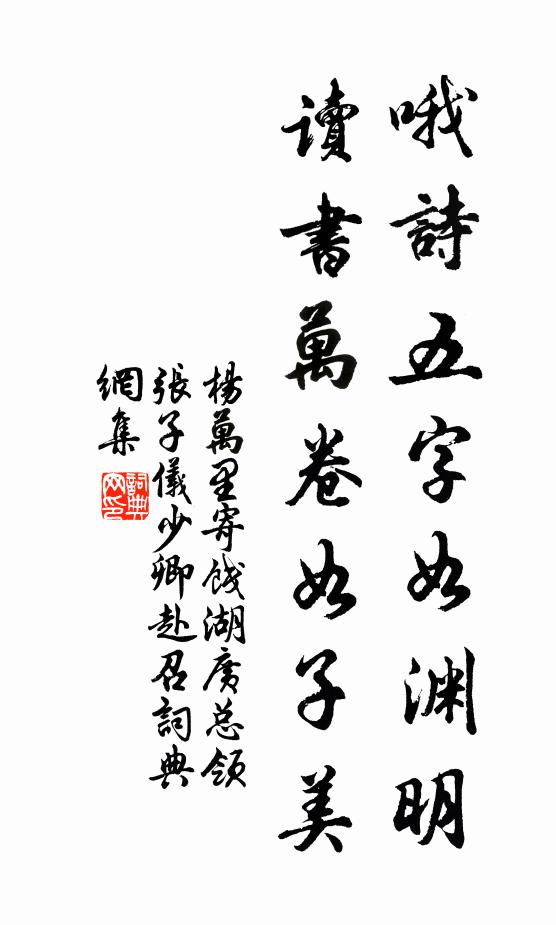 哦詩五字如渊明
讀書萬卷如子美
楊萬里寄餞湖廣总領
張子儀少卿赴召詞典
網集
詞典
网印